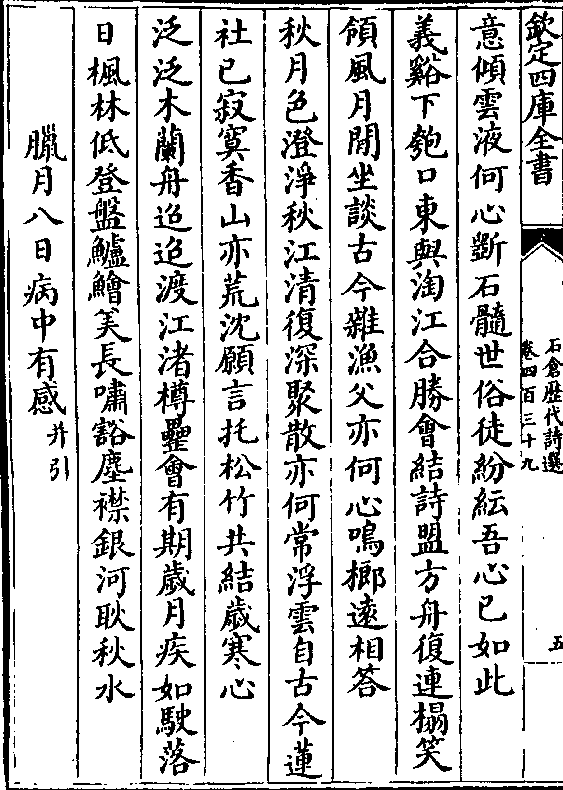 欽定四庫全書
石倉歴代詩選
卷四百三十九
五
意傾雲液何心斵石髓世俗徒紛紜吾心已如此
義谿下匏口東興淘江合勝會結詩盟方舟復連榻笑
領風月閒坐談古今雜漁父亦何心鳴榔遠相答
秋月色澄淨秋江清復深聚散亦何常浮雲自古今蓮
社已寂寞香山亦荒沈願言托松竹共結歲寒心
泛泛木蘭舟迢迢渡江渚樽罍會有期歲月疾如駛落
日楓林低登盤鱸鱠美長嘯豁塵襟銀河耿秋水
臘月八日病中有感并引